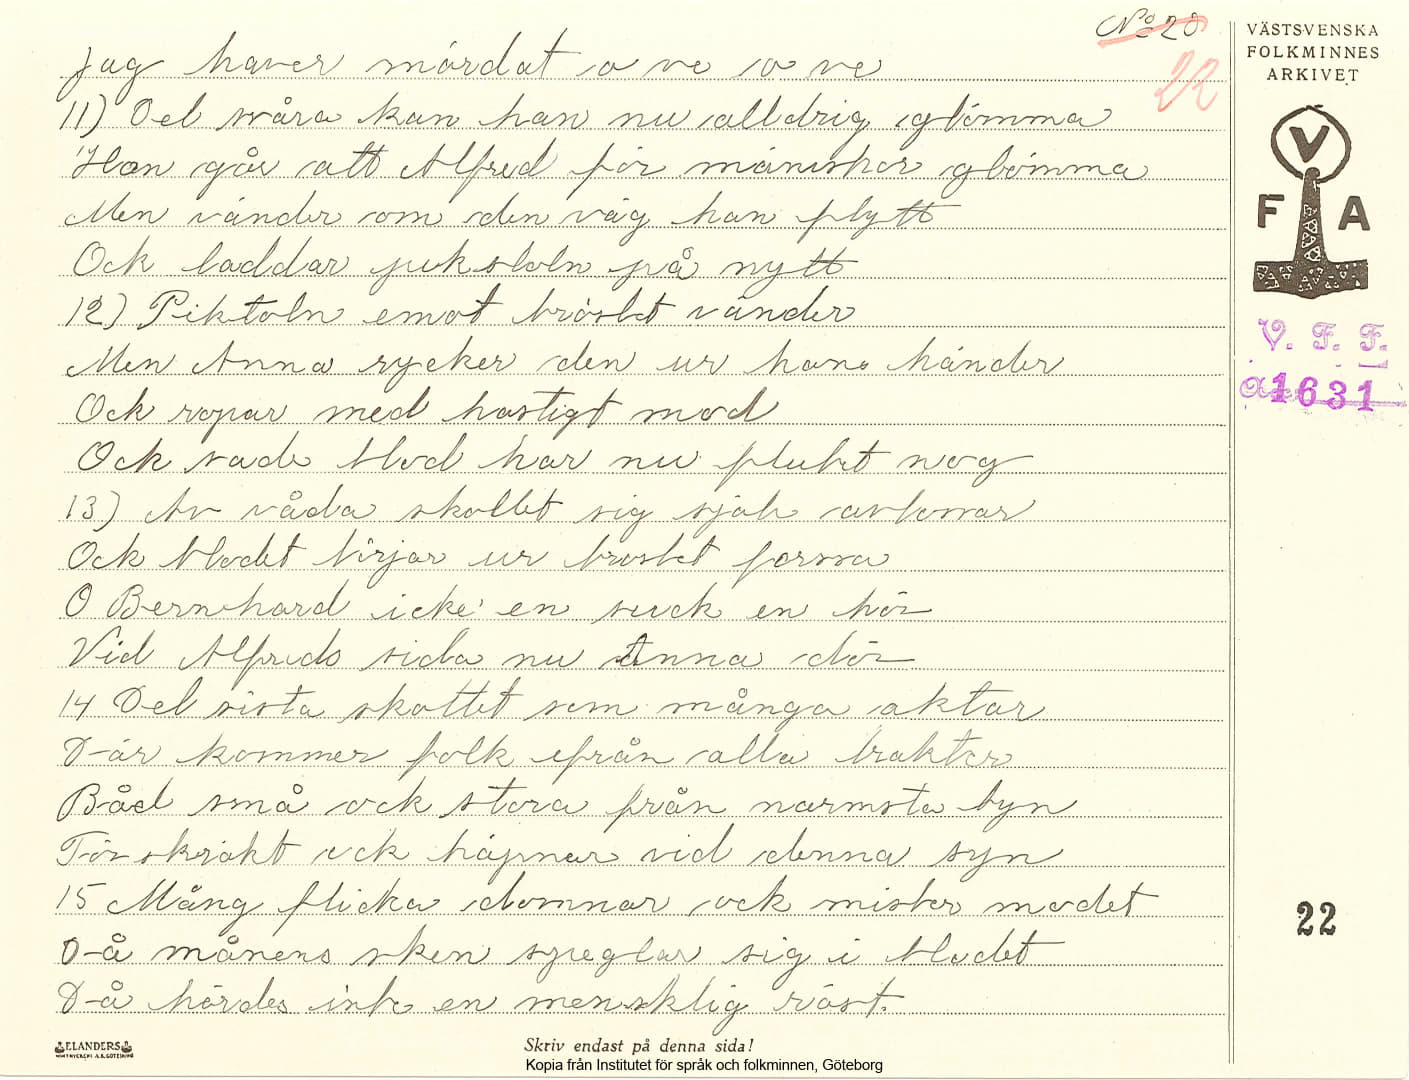 No 28
22
VÄSTSVENSKA
FOLKMINNES
ARKIVET
V
F A
V. F. F.
1631
22
Jag haver mördat o ve o ve
11) Del svåra kan han nu alldrig glömma
Han går att Alfred för mäniskor glömma
Men vänder om den väg han flytt
Ock laddar pukstoln på nytt
12) Piktoln emot bröstet vänder
Men Anna rycker den ur hans händer
Ock ropar med hastigt mod
Ock sade blod har nu flutet nog
13) Av våda skottet sig själv avlossar
Ock blodet börjar ur brostet forssa
O Bernhard icke en suck en hör
Vid Alfreds sida nu Anna dör
14 Del sista skottet som många aktar
Där kommer folk ifrån alla trakter
Båd små ock stora från närmsta byn
Förskräkt ock häpnar vid denna syn
15 Mång flicka domnar ock mister modet
Då månens sken speglar sig i blodet
Då hördes inte en mensklig röst.
ELANDERS
Skriv endast på denna sida!
Kopia från Institutet för språk och folkminnen, Göteborg